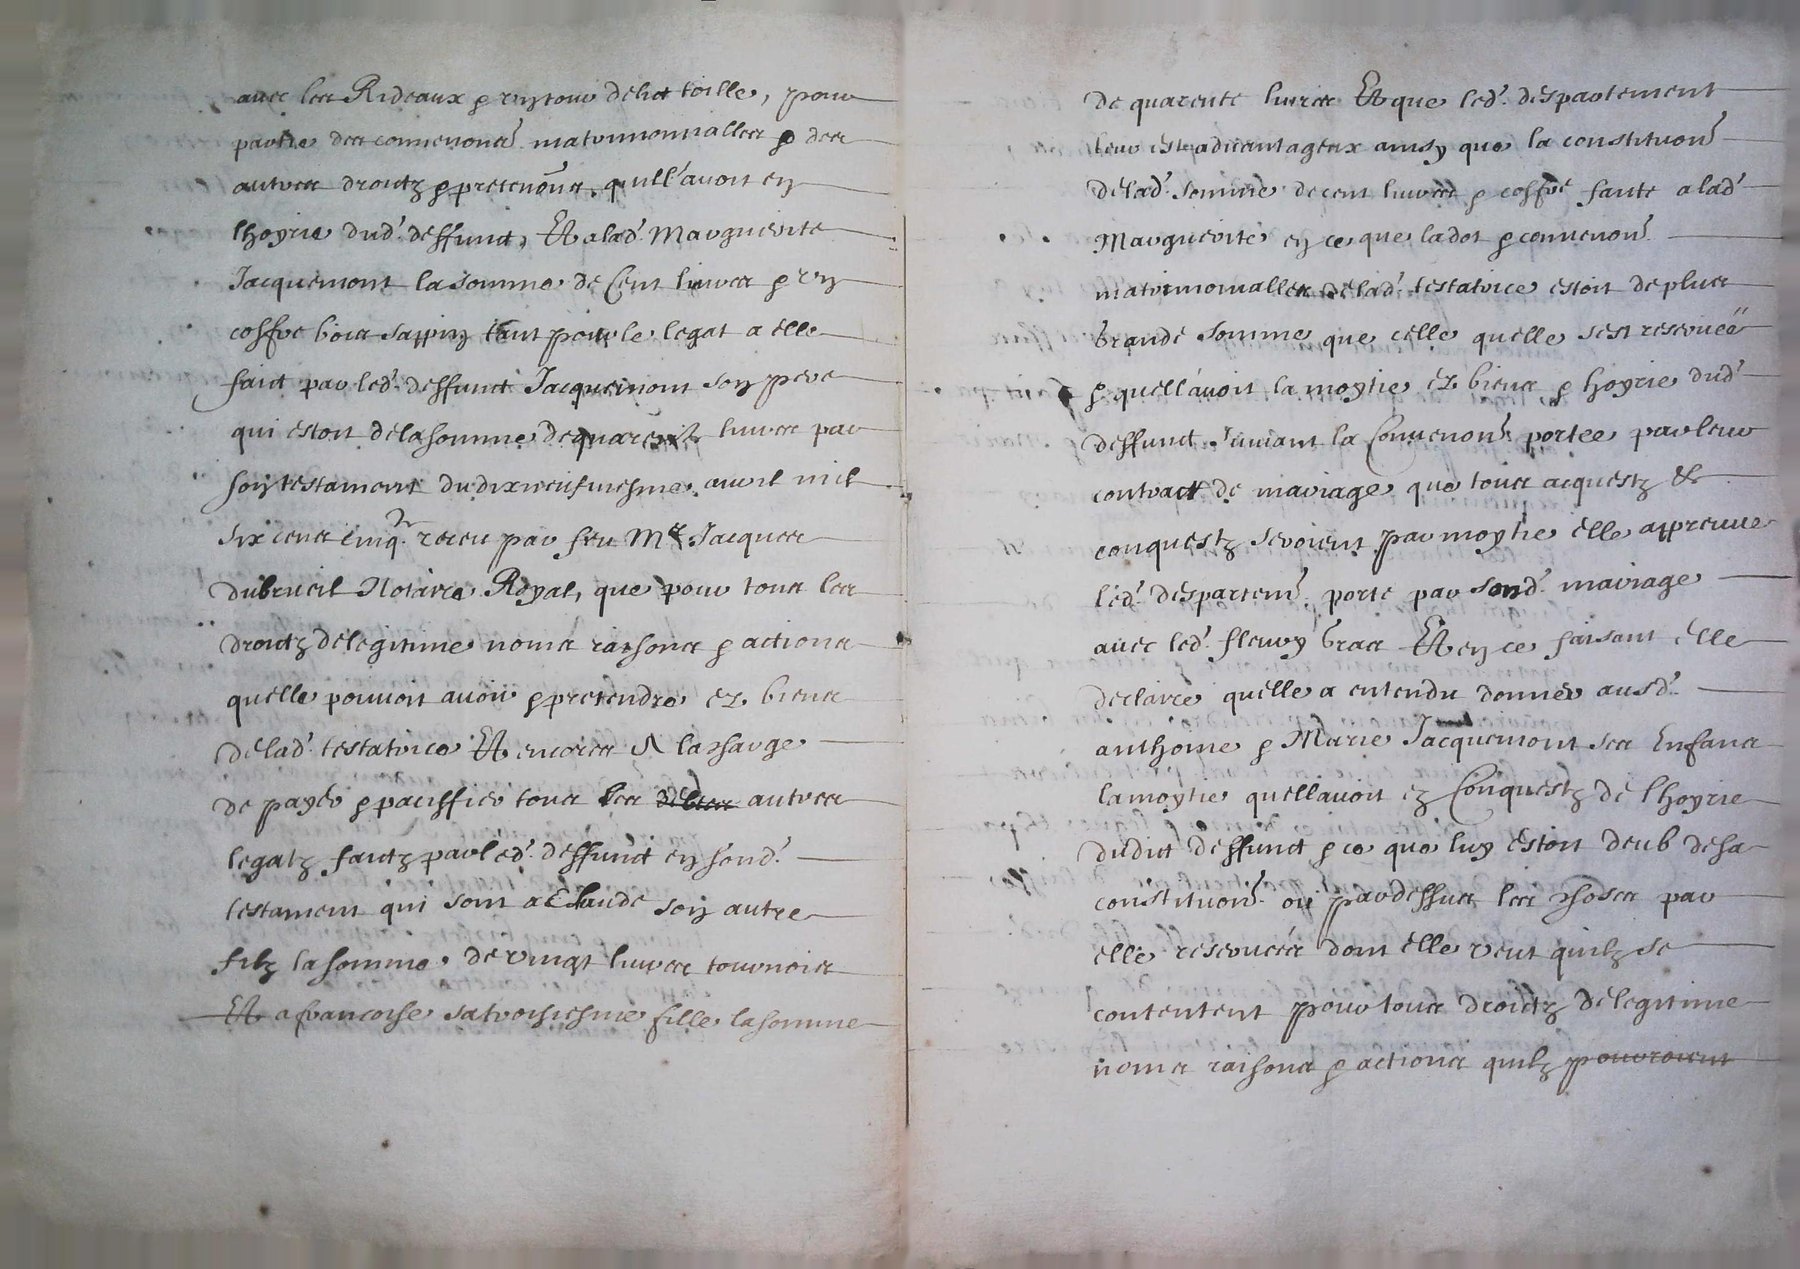 avec les Rideaux & un tour delict toille, pour
partie des convenōns matrimonialles & des
autres droitz & pretenōns, qu'il avoit en
lhoyrie dud. deffunct, Et a lad. Marguerite
Jacquemont la somme de Cent livres & un
coffre bois sappin tant pour le legat a elle
faict par led. deffunct Jacquemont son pere
qui estoit de la somme de quarente livres par
son testament du dixneufviesme avvril mil
six cens cinq. receu par feu Me Jacques
dubrueil Notaire Royal, que pour tous les
droictz de legitime noms raisons & actions
quelle pouvoit avoir & pretendre ez biens
de lad. testatrice Et encores a la charge
de payer & paciffier tous les debtes autres
legatz faictz par led. deffunct en sond.
testament qui sont a Claude son autre
filz la somme de vingt livres tournois
Et a francoise sa troisiesme fille la somme
de quarente livres Et que led. despartement
leur est advantageux ainsy que la constituōn
de lad. somme de cent livres & coffre faite a lad.
Marguerite en ce que la dot & convenōns
matrimonialles de lad. testatrice estoit de plus
grande somme que celle quelle sest reservée
& quell'avoit la moytie ez biens & hoyrie dud.
deffunct suivant la Convenōn portee par leur
contract de mariage que tous acquestz &
conquestz seroient par moytie elle appreuve
led. despartem. porte par sond. mariage
avec led. fleury Gras Et en ce faisant elle
declaire quelle a entendu donner ausd.
anthoine & Marie Jacquemont ses Enfans
la moytie quell'avoit ez Conquestz de lhoyrie
dudict deffunct & ce que luy estoit deub de sa
constituōn oů par dessus les choses par
elle reservées dont elle veut quilz se
contentent pour tous droictz de legitime
noms raisons & actions quilz pourroient